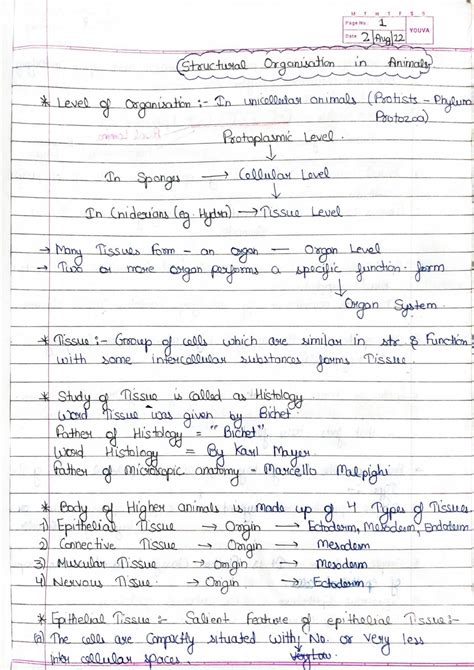 M T W T F S S
Page No.: 1
Date: 2 Aug 22
YOUVA
Structural Organisation in Animals
* Level of Organisation :- In unicellular animals (Protists - Phylum
Protozoa)
Protoplasmic Level.
↓
In Sponges → Cellular Level
↓
In Cniderians (eg. Hydra) → Tissue Level
→ Many Tissues Form - an organ — Organ Level
→ Two or more organ performs a specific function. form
↓
Organ System.
* Tissue :- Group of cells which are similar in str & Function
with some intercellular substances forms Tissue
* Study of Tissue is called as Histology
Word Tissue was given by Bichet.
Father of Histology = "Bichet"
Word Histology = By Karl Mayer
Father of Microscopic anatomy - Marcello Malpighi
* Body of Higher animals is made up of 4 Types of Tissues.
1) Epithelial Tissue → Origin → Ectoderm, Mesoderm, Endoderm
2) Connective Tissue → Origin → Mesoderm
3) Muscular Tissue → Origin → Mesoderm
4) Nervous Tissue. → Origin → Ectoderm
* Epithelial Tissue :- Salient Feature of epithelial Tissue :-
(a) The cells are Compactly situated with No. or very less
inter cellular spaces.